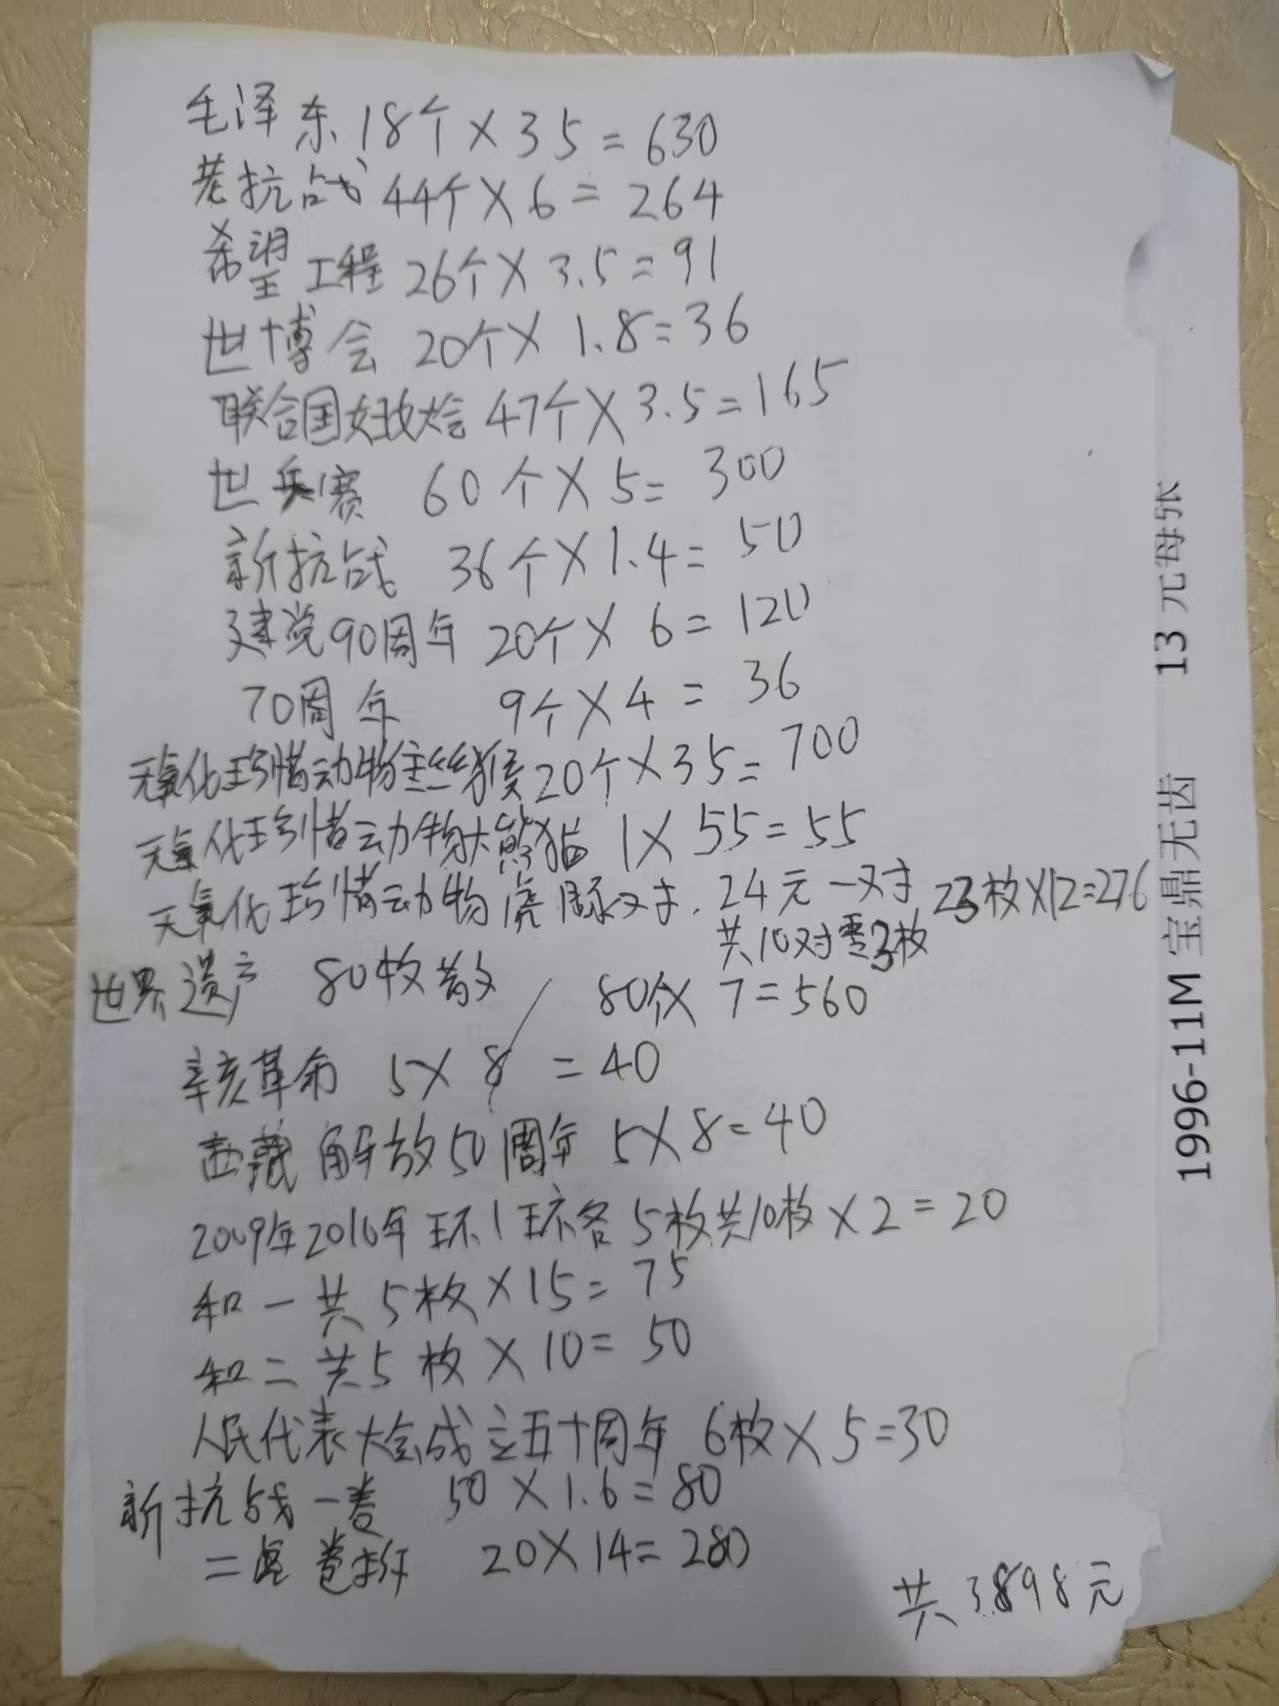 毛泽东 18个×35=630
老抗战 44个×6=264
希望工程 26个×3.5=91
世博会 20个×1.8=36
联合国妇女大会 47个×3.5=165
世乒赛 60个×5=300
新抗战 36个×1.4=50
建党90周年 20个×6=120
70周年 9个×4=36
无氧化珍惜动物金丝猴 20个×35=700
无氧化珍惜动物大熊猫 1×55=55
无氧化珍惜动物虎豚对寸. 24元一对 23枚×12=276
共10对零3枚
世界遗产 80枚散 80个×7=560
辛亥革命 5×8=40
西藏解放50周年 5×8=40
2009年2010年环1环各5枚共10枚×2=20
和一共5枚×15=75
和二共5枚×10=50
人民代表大会成立五十周年 6枚×5=30
新抗战一卷 50×1.6=80
二 卷拆 20×14=280
共3898元
1996-11M 宝鼎无齿 13元每张